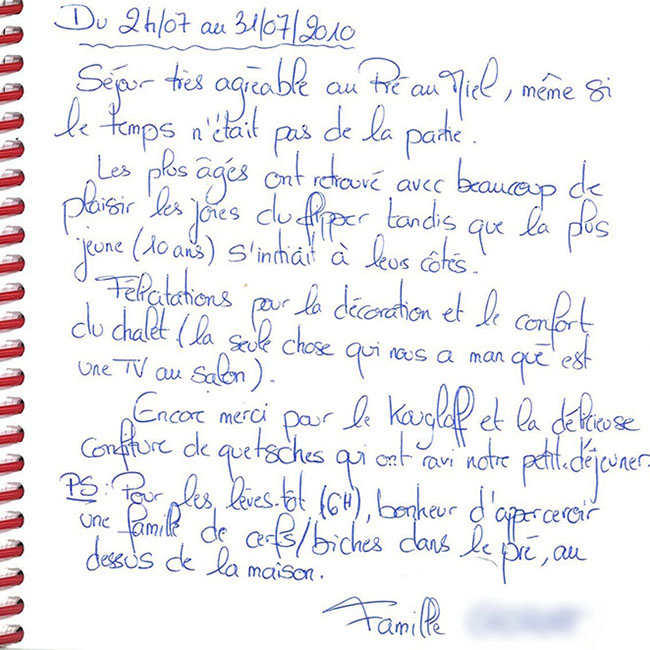 Du 24/07 au 31/07/2010
Séjour très agréable au Pré au Miel, même si
le temps n'était pas de la partie.
Les plus âgés ont retrouvé avec beaucoup de
plaisir les joies du flipper tandis que la plus
jeune (10 ans) s'initiait à leurs côtés.
Félicitations pour la décoration et le confort
du chalet (la seule chose qui nous a manqué est
une TV au salon).
Encore merci pour le Kougloff et la délicieuse
confiture de quetsches qui ont ravi notre petit-déjeuner.
PS : Pour les lèves-tôt (6H), bonheur d'appercevoir
une famille de cerfs/biches dans le pré, au
dessus de la maison.
Famille